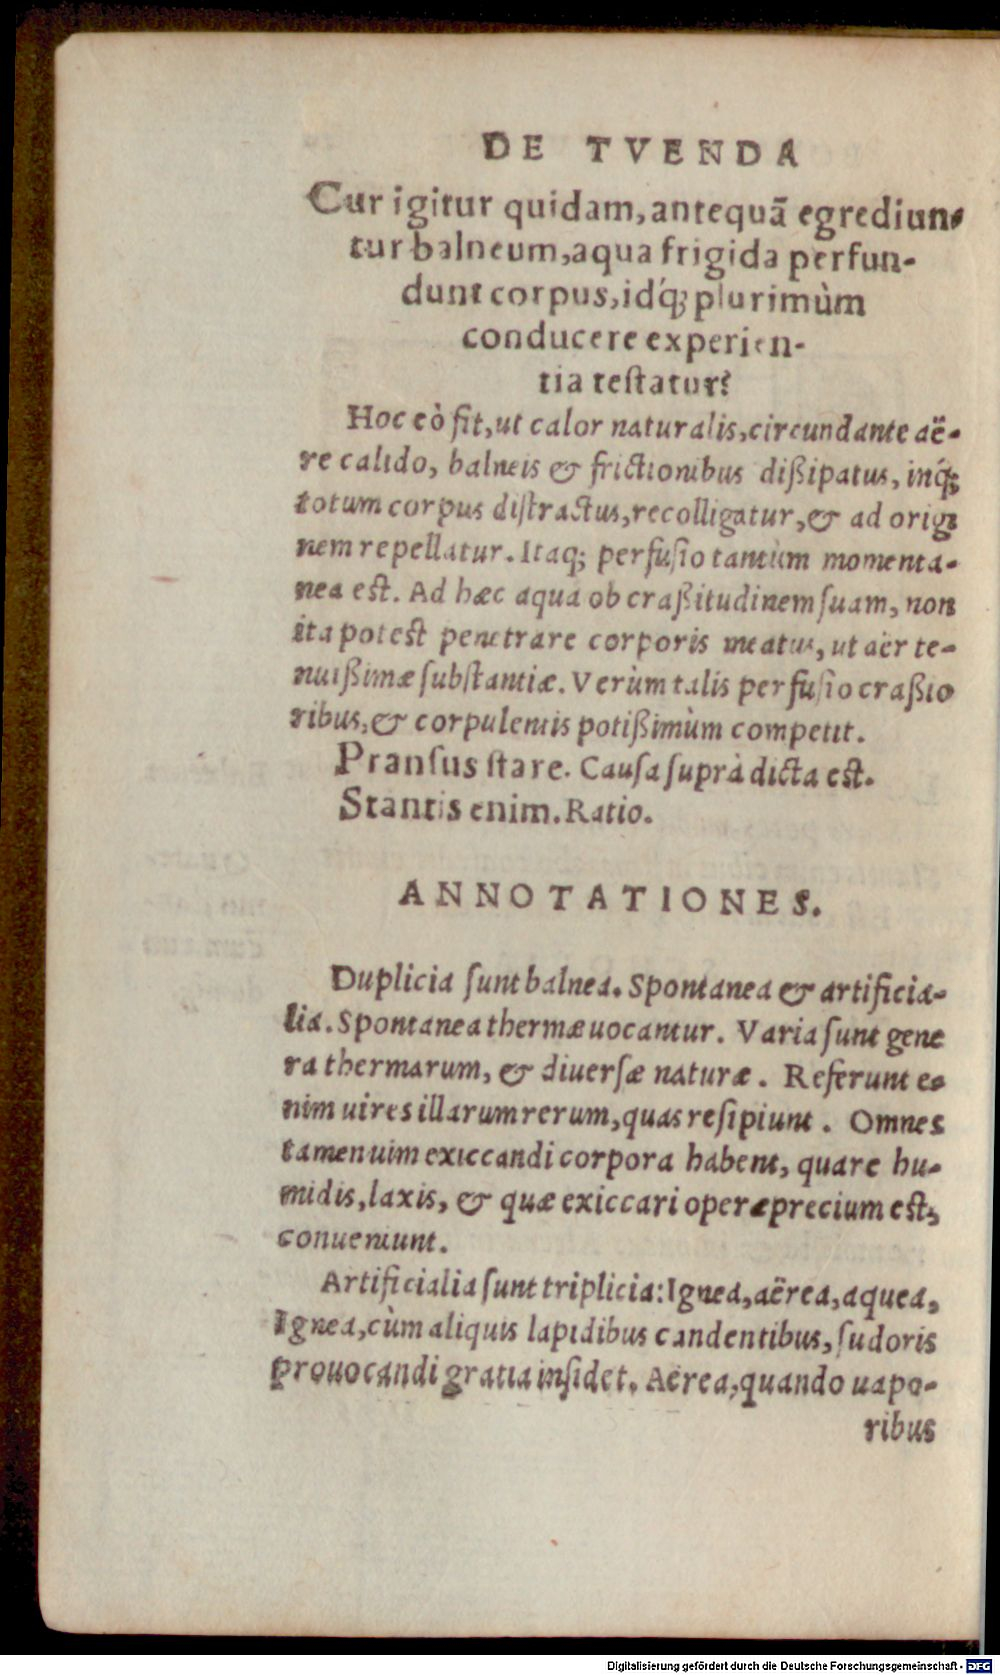 DE TVENDA
Cur igitur quidam, antequã egrediun-
tur balneum, aqua frigida perfun-
dunt corpus, idq́; plurimùm
conducere experien-
tia testatur?
Hoc eò fit, ut calor naturalis, circundante aë-
re calido, balneis & frictionibus dißipatus, inq́;
totum corpus distractus, recolligatur, & ad origi
nem repellatur. Itaq; perfusio tantùm momenta-
nea est. Ad hæc aqua ob craßitudinem suam, non
ita potest penetrare corporis meatus, ut aër te-
nuißimæ substantiæ. Verùm talis perfusio craßio
ribus, & corpulentis potißimùm competit.
Pransus stare. Causa suprà dicta est.
Stantis enim. Ratio.
ANNOTATIONES.
Duplicia sunt balnea. Spontanea & artificia-
lia. Spontanea thermæ uocantur. Varia sunt gene
ra thermarum, & diuersæ naturæ. Referunt e-
nim uires illarum rerum, quas resipiunt. Omnes
tamen uim exiccandi corpora habent, quare hu-
midis, laxis, & quæ exiccari operæprecium est,
conueniunt.
Artificialia sunt triplicia: Ignea, aërea, aquea,
Ignea, cùm aliquis lapidibus candentibus, sudoris
prouocandi gratia insidet. Aërea, quando uapo-
ribus
Digitalisierung gefördert durch die Deutsche Forschungsgemeinschaft - DFG